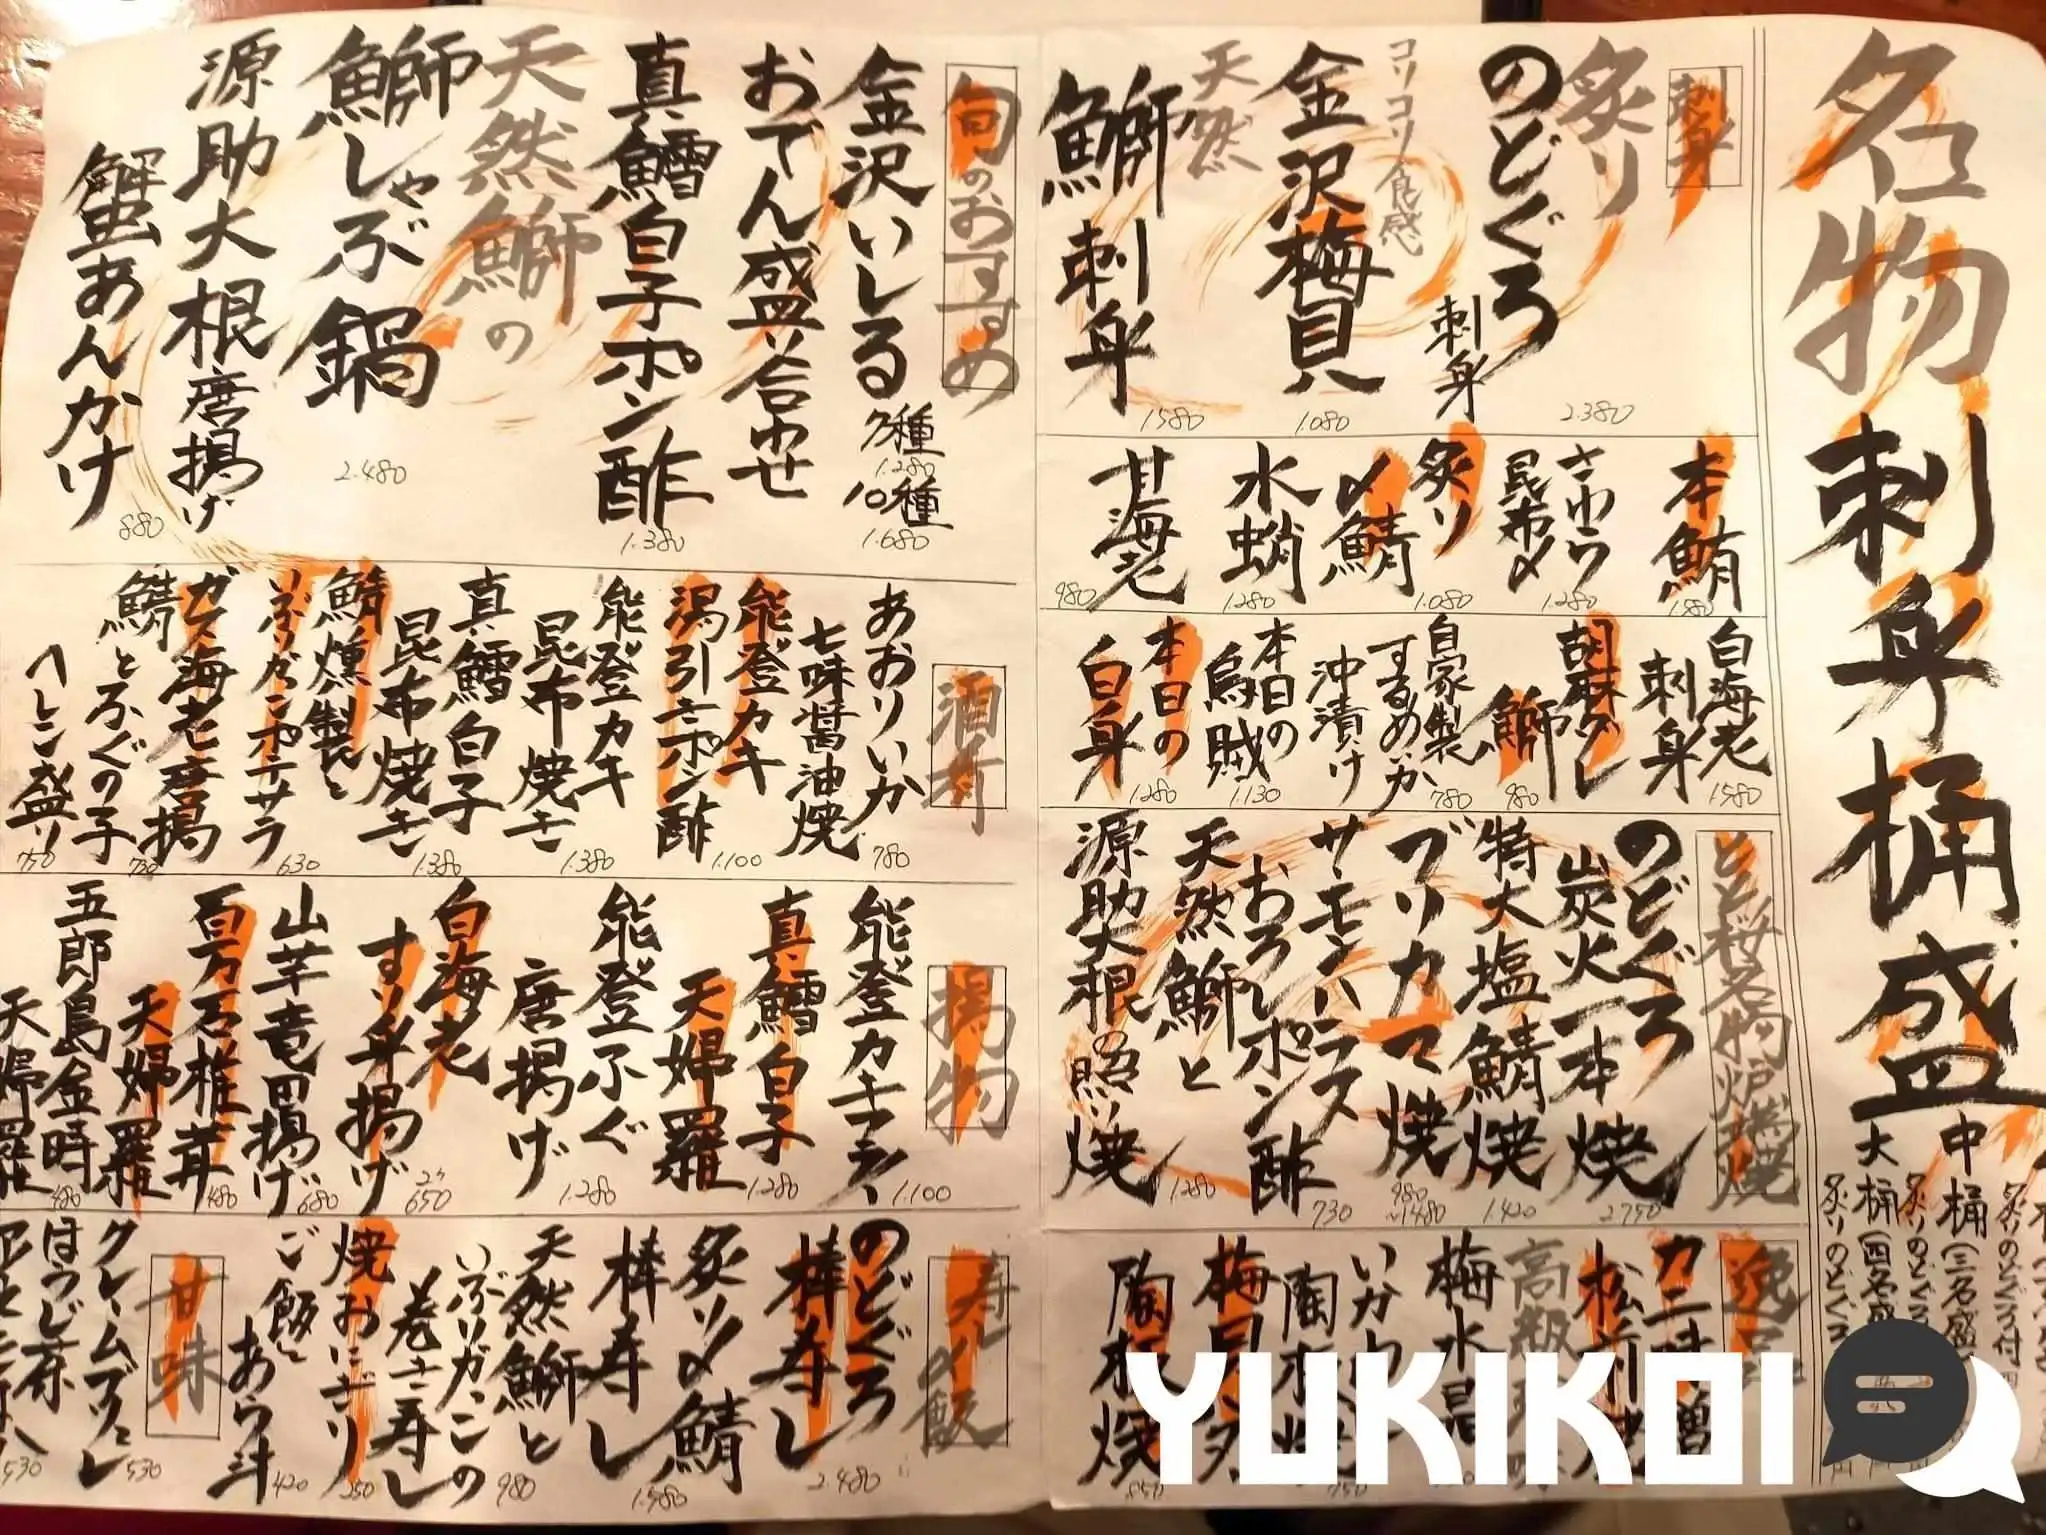 名物 刺身桶盛
中桶(三名盛
大桶(四名盛
炙りのどぐろ
刺身
炙り
のどぐろ
刺身
2.380
コリコリ食感
金沢梅貝
1.080
天然
鰤刺身
1580
本鮪
1.580
さわら
昆布〆
1.280
炙り
〆鯖
1.080
水蛸
1.280
甘海老
980
白海老
刺身
1580
胡麻ダレ
鰤
980
自家製
するめいか
沖漬け
780
本日の
烏賊
1.130
本日の
白身
1.280
とと桜名物炉端焼
のどぐろ
炭火一本焼
2750
特大塩鯖焼
1.420
ブリカマ焼
980
~1480
サーモンハラス
おろしポン酢
730
天然鰤と
源助大根の照り焼
1.280
逸品
カニ味噌
高級
梅水晶
いか
陶板焼
850
旬のおすすめ
金沢いしる
おでん盛り合わせ
7種
1.280
10種
1.680
真鱈白子ポン酢
1.380
天然鰤の
鰤しゃぶ鍋
2.480
源助大根唐揚げ
蟹あんかけ
880
酒肴
あおりいか
七味醤油焼
780
能登カキ
潟引きポン酢
1.100
能登カキ
昆布焼き
1.380
真鱈白子
昆布焼き
1.380
鯖燻製と
いぶりがっこポテサラ
630
ガス海老唐揚
730
鯖とふぐの子
へしこ盛り
750
揚物
能登カキフライ
1.100
真鱈白子
天婦羅
1.280
能登ふぐ
唐揚げ
1.280
白海老
すり身揚げ
2ケ
650
山芋竜田揚げ
680
百万石椎茸
天婦羅
480
五郎島金時
天婦羅
480
寿し・飯
のどぐろ
棒寿し
2.480
炙り〆鯖
棒寿し
1.580
天然鰤と
いぶりがっこの
巻き寿し
980
焼おにぎり
250
ご飯と
あら汁
420
甘味
クレームブリュレ
530
ほうじ茶
530
YUKIKOI